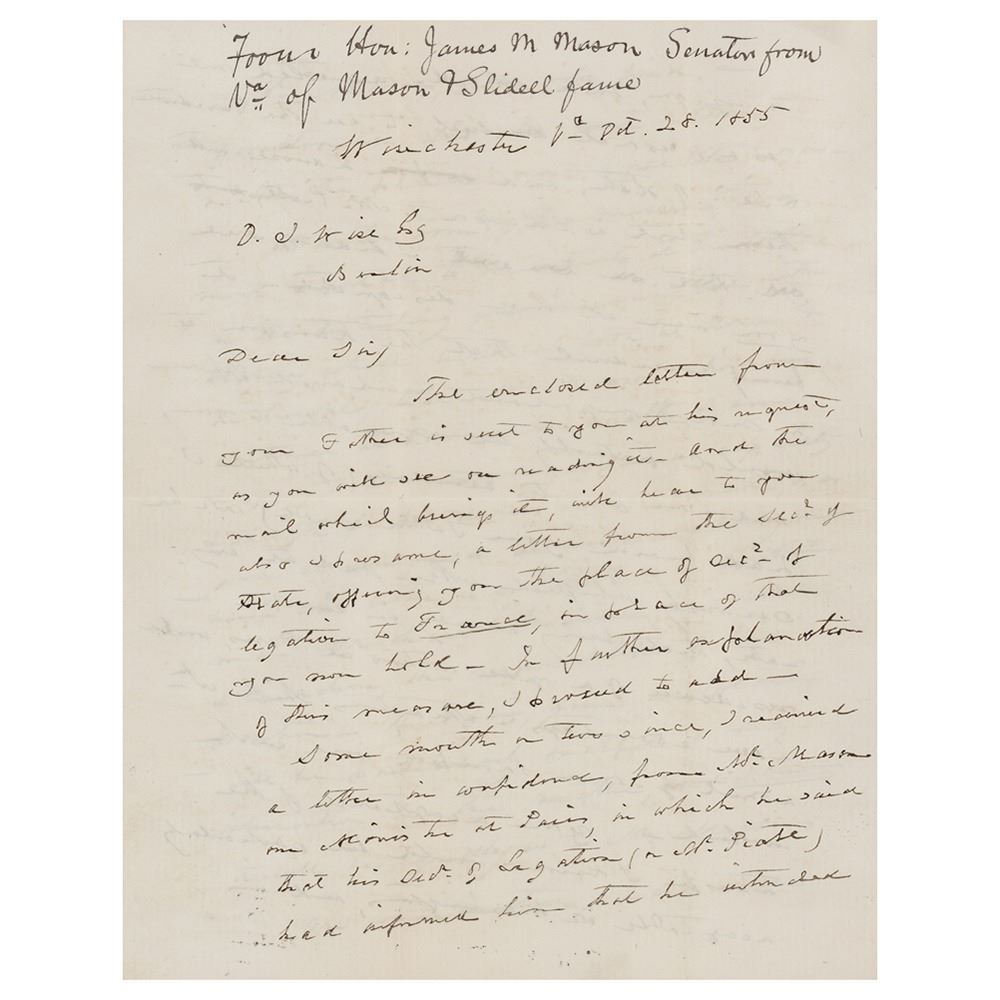 From Hon: James M Mason Senator from
Va of Mason & Slidell fame
Winchester Va Oct. 28. 1855
D. J. Wise Esq
Berlin
Dear Sir,
The enclosed letter from
your Father is sent to you at his request,
as you will see on reading it - And the
mail which brings it, will bear to you
also I presume, a letter from the Secy of
State, offering you the place of Secy of
legation to France, in place of that
you now hold - In further explanation
of this measure, I proceed to add -
Some month or two since, I received
a letter in confidence, from Mr. Mason
our Minister at Paris, in which he said
that his Secy of Legation (a Mr. Piatt)
had informed him that he intended